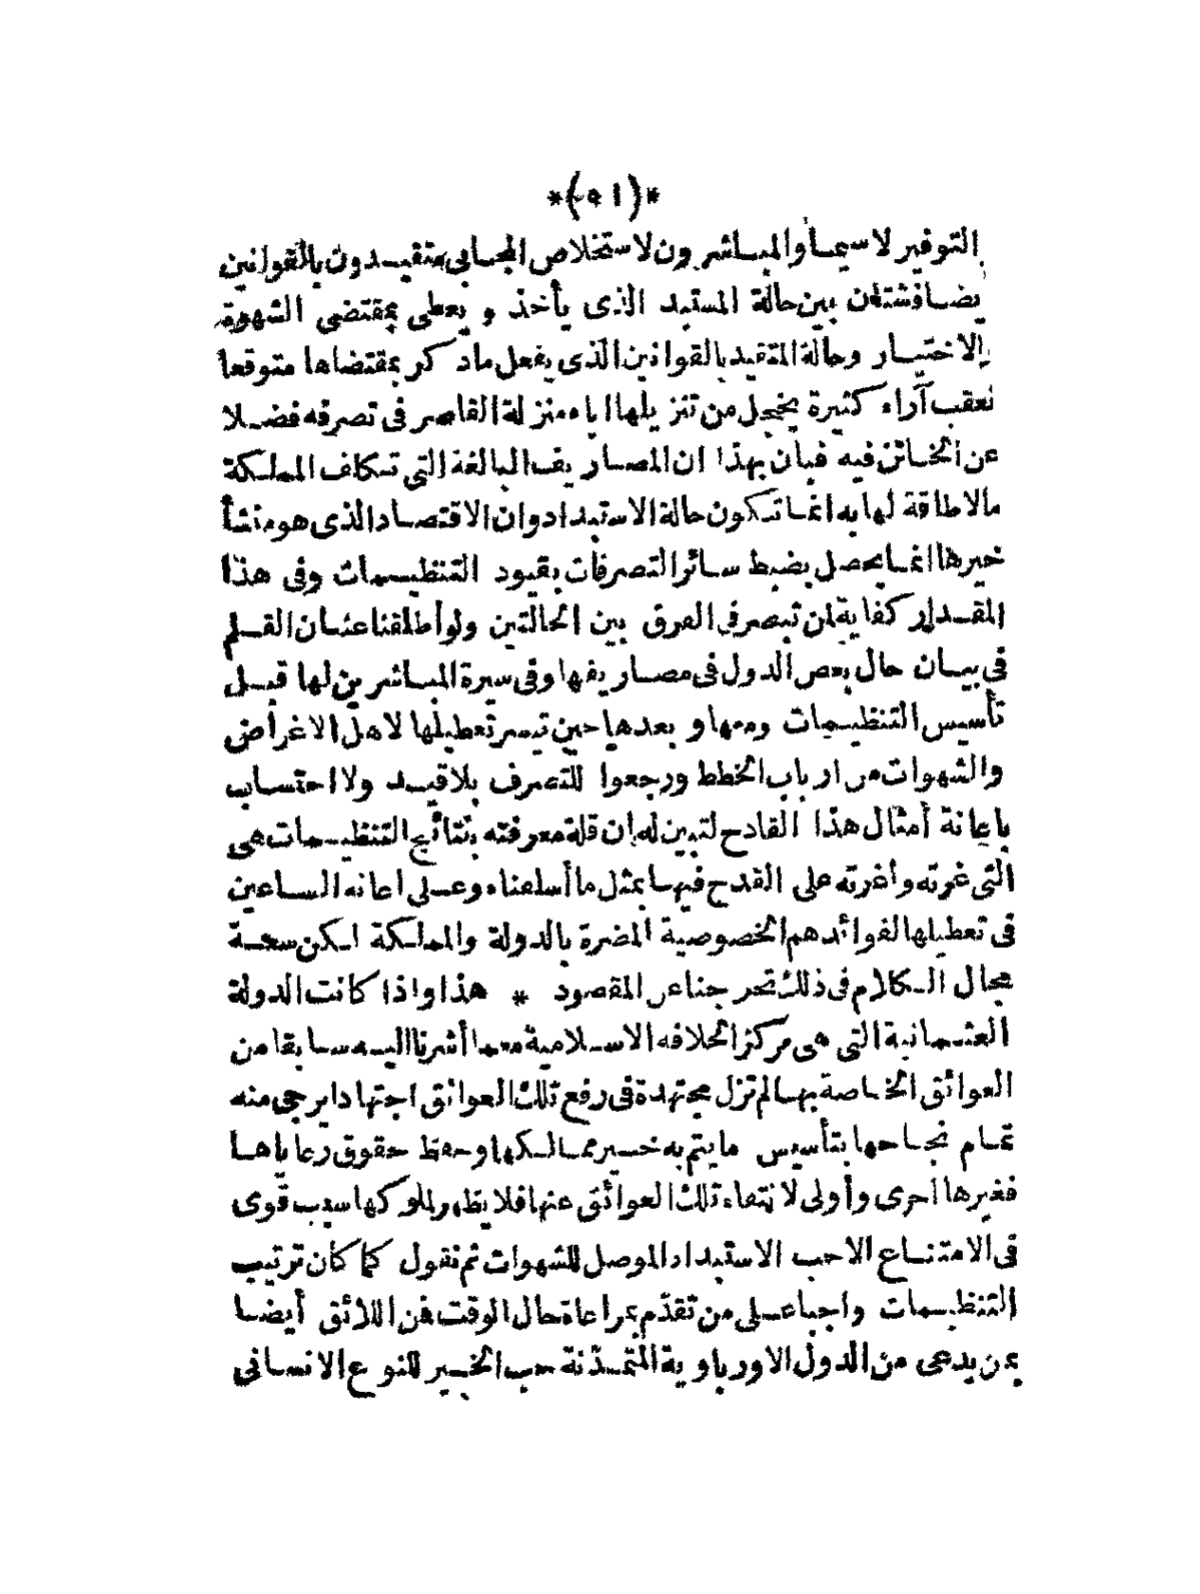 *(٥١)*
التوفير لاسيما والمباشرون لاستخلاص المجابى متقيدون بالقوانين
يضا فشتان بين حالة المستبد الذى يأخذ و يعطى بمقتضى الشهوة
الاختيار وحالة المتقيد بالقوانين الذى يفعل ماذكر بمقتضاها متوقعا
تعقب آراء كثيرة يخجل من تنزيلها اياه منزلة القاصر فى تصرفه فضلا
عن الخائن فيه فبان بهذا ان المصاريف البالغة التى تكلف المملكة
مالاطاقة لها به انما تكون حالة الاستبداد وان الاقتصاد الذى هو منشأ
خيرها انما يحصل بضبط سائر التصرفات بقيود التنظيمات وفى هذا
المقدار كفاية لمن تبصر فى الفرق بين الحالتين ولو أطلقنا عنان القلم
فى بيان حال بعض الدول فى مصاريفها وفى سيرة المباشرين لها قبل
تأسيس التنظيمات ومعها و بعدها حين تيسر تعطيلها لاهل الاغراض
والشهوات من ارباب الخطط ورجعوا للتصرف بلاقيد ولا احتساب
باعانة أمثال هذا القادح لتبين له ان قلة معرفته بنتائج التنظيمات هى
التى غرته وأغرته على القدح فيها بمثل ما أسلفناه وعلى اعانه الساعين
فى تعطيلها لفوائدهم الخصوصية المضرة بالدولة والمملكة لكن سعة
مجال الكلام فى ذلك تخرجنا عن المقصود * هذا واذا كانت الدولة
العثمانية التى هى مركز الخلافه الاسلامية مع ما أشرنا اليه سابقا من
العوائق الخاصة بها لم تزل مجتهدة فى رفع تلك العوائق اجتهادا يرجى منه
تمام نجاحها بتأسيس ما يتم به خير ممالكها وحفظ حقوق رعاياها
فغيرها أحرى وأولى لانتفاء تلك العوائق عنها فلا يظهر لملوكها سبب قوى
فى الامتناع الا حب الاستبداد الموصل للشهوات ثم نقول كما كان ترتيب
التنظيمات واجبا على من تقدّم بمراعاة حال الوقت فمن اللائق أيضا
بمن يدعى من الدول الاورباوية المتمدّنة حب الخير للنوع الانسانى